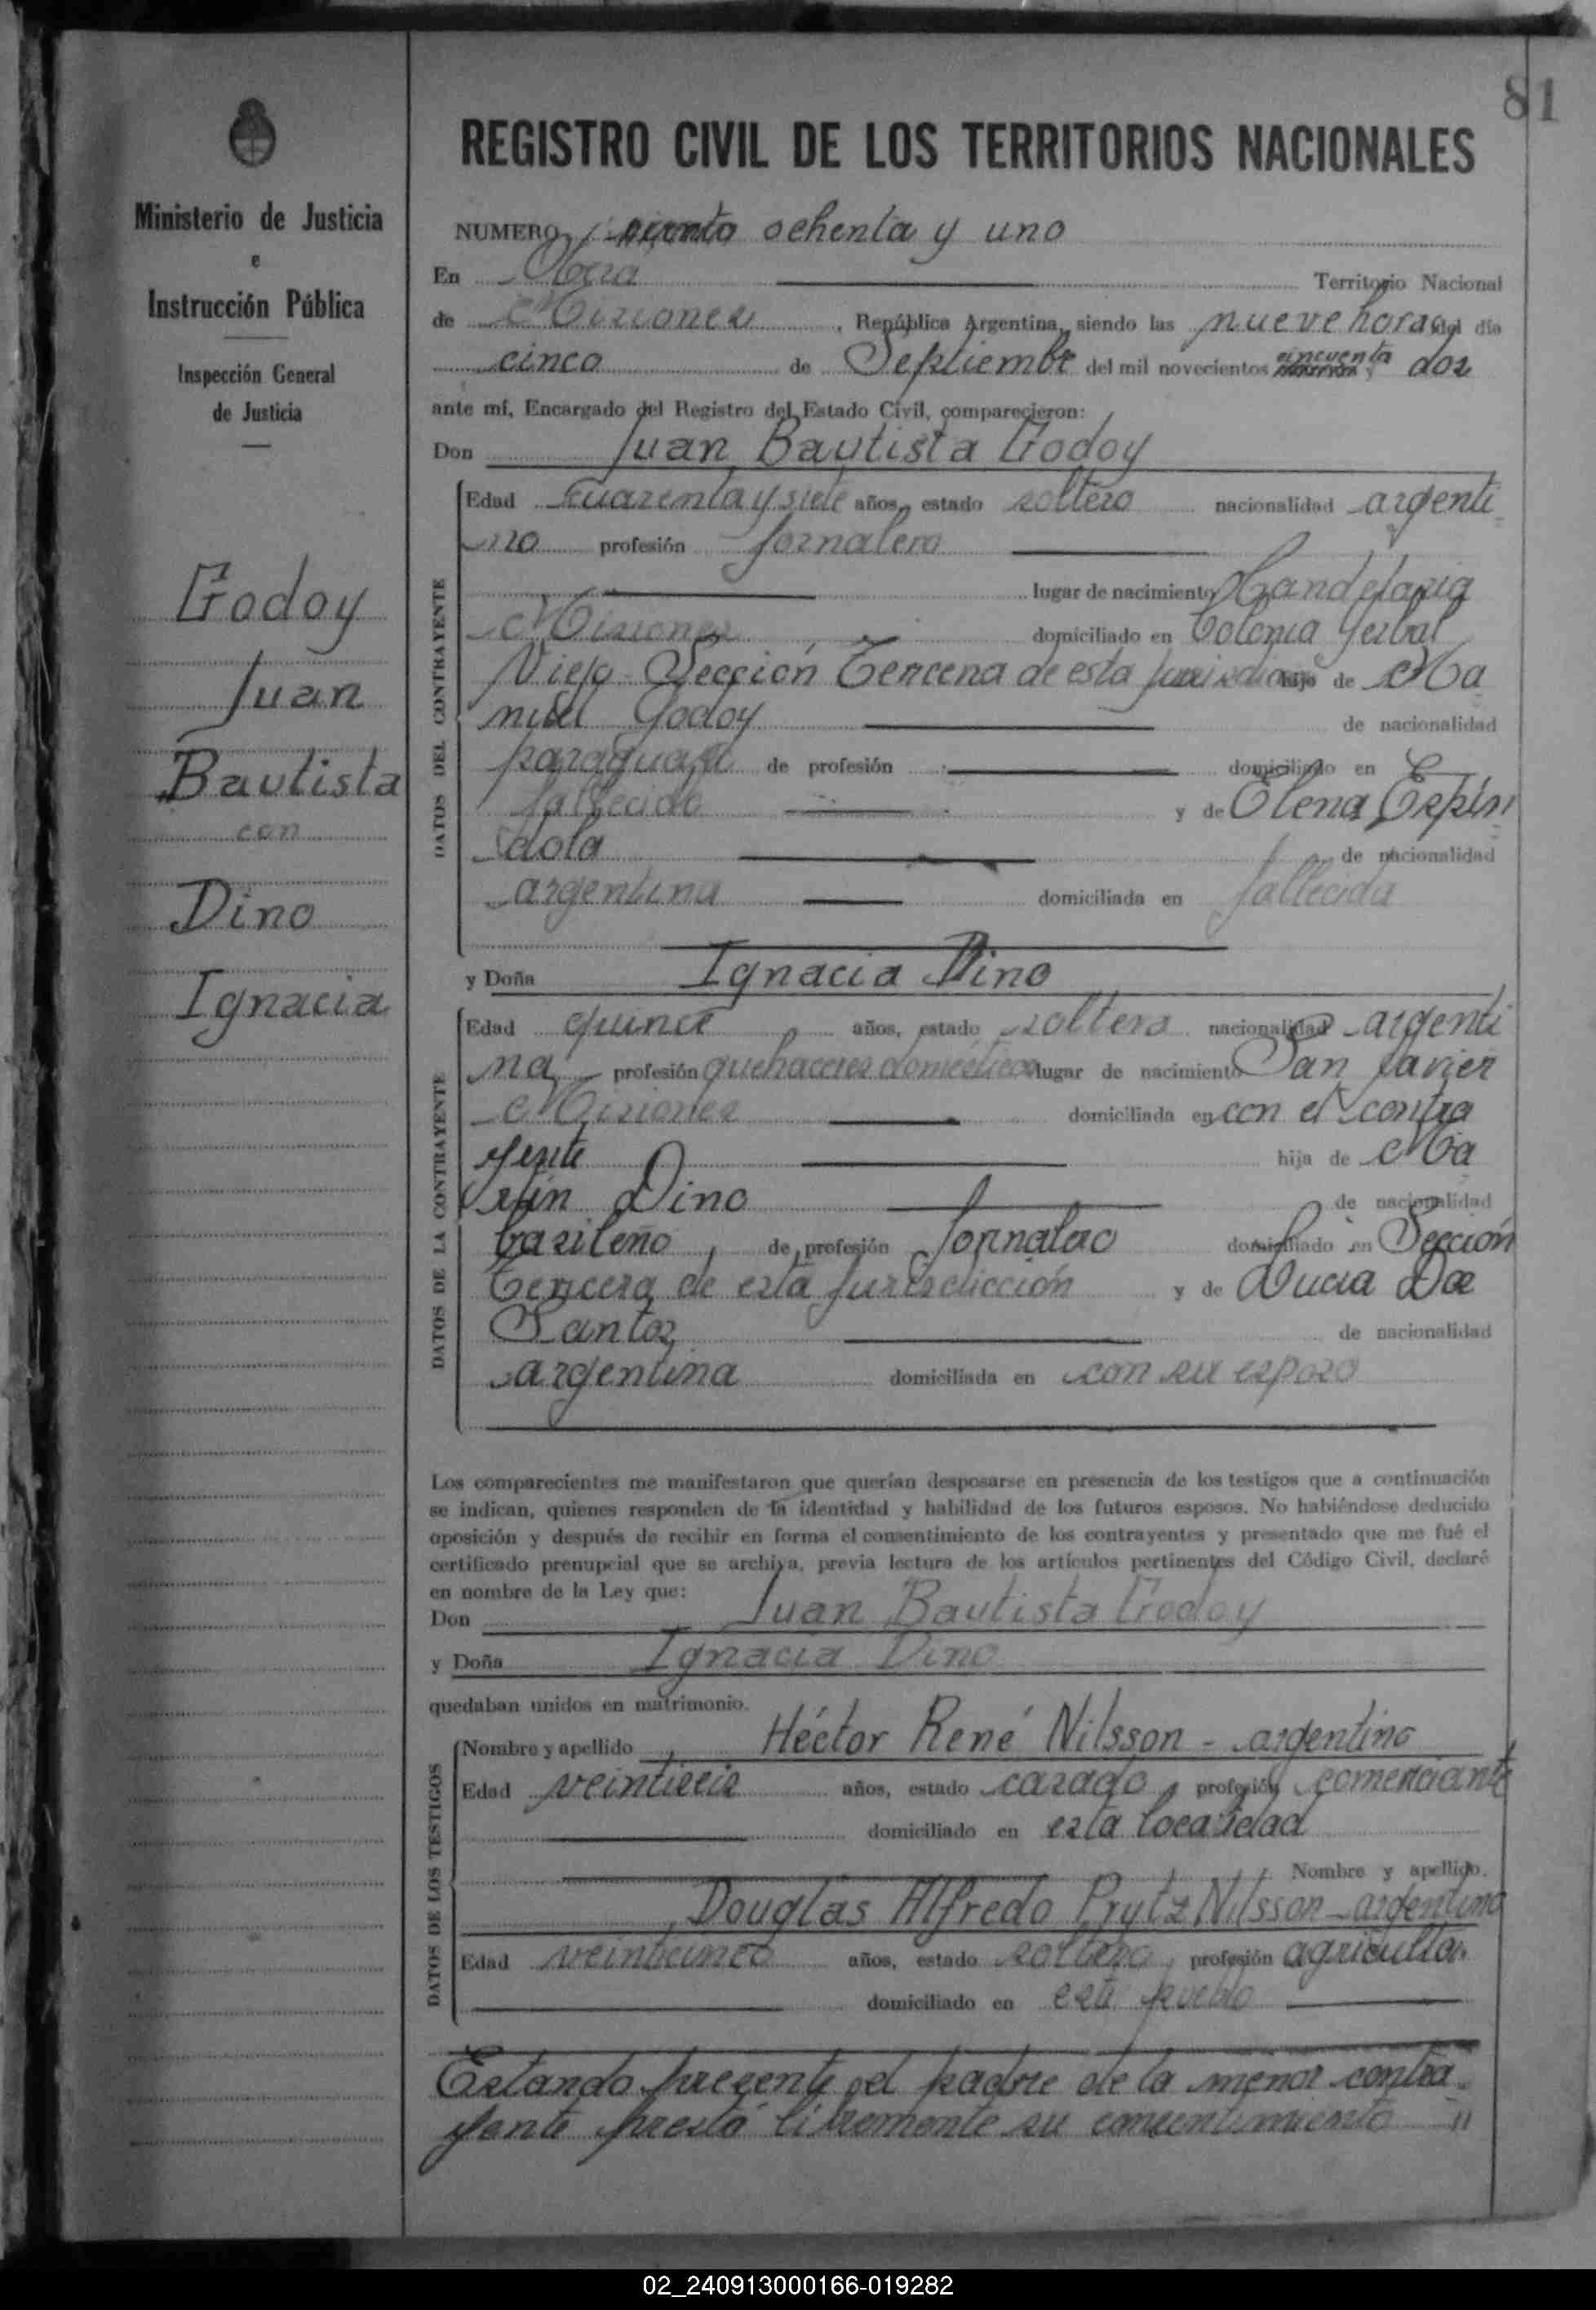 81
Ministerio de Justicia
e
Instrucción Pública
Inspección General
de Justicia
Godoy
Juan
Bautista
con
Dino
Ignacia
REGISTRO CIVIL DE LOS TERRITORIOS NACIONALES
NUMERO ciento ochenta y uno
En Oberá Territorio Nacional
de Misiones, República Argentina, siendo las nueve horas del día
cinco de Septiembre del mil novecientos cincuenta y dos
ante mí, Encargado del Registro del Estado Civil, comparecieron:
Don Juan Bautista Godoy
DATOS DEL CONTRAYENTE
Edad cuarenta y siete años, estado soltero nacionalidad argenti
no profesión jornalero
lugar de nacimiento Candelaria
Misiones domiciliado en Colonia Yerbal
Viejo Sección Tercera de esta jurisdicción hijo de Ma
nuel Godoy de nacionalidad
paraguaya de profesión domiciliado en
fallecido y de Elena Espín
dola de nacionalidad
argentina domiciliada en fallecida
y Doña Ignacia Dino
DATOS DE LA CONTRAYENTE
Edad quince años, estado soltera nacionalidad argenti
na profesión quehaceres domésticos lugar de nacimiento San Javier
Misiones domiciliada en con el contra
yente hija de Ma
rtín Dino de nacionalidad
brasileño, de profesión Jornalero domiciliado en Sección
Tercera de esta jurisdicción y de Lucia Dos
Santos de nacionalidad
argentina domiciliada en con su esposo
Los comparecientes me manifestaron que querían desposarse en presencia de los testigos que a continuación
se indican, quienes responden de la identidad y habilidad de los futuros esposos. No habiéndose deducido
oposición y después de recibir en forma el consentimiento de los contrayentes y presentado que me fué el
certificado prenupcial que se archiva, previa lectura de los artículos pertinentes del Código Civil, declaré
en nombre de la Ley que:
Don Juan Bautista Godoy
y Doña Ignacia Dino
quedaban unidos en matrimonio.
DATOS DE LOS TESTIGOS
Nombre y apellido Héctor René Nilsson - argentino
Edad veintiseis años, estado casado, profesión comerciante
domiciliado en esta localidad
Nombre y apellido.
Douglas Alfredo Prytz Nilsson - argentino
Edad veinticinco años, estado soltero, profesión agricultor
domiciliado en este pueblo
Estando presente el padre de la menor contra
yente prestó libremente su consentimiento
02_240913000166-019282